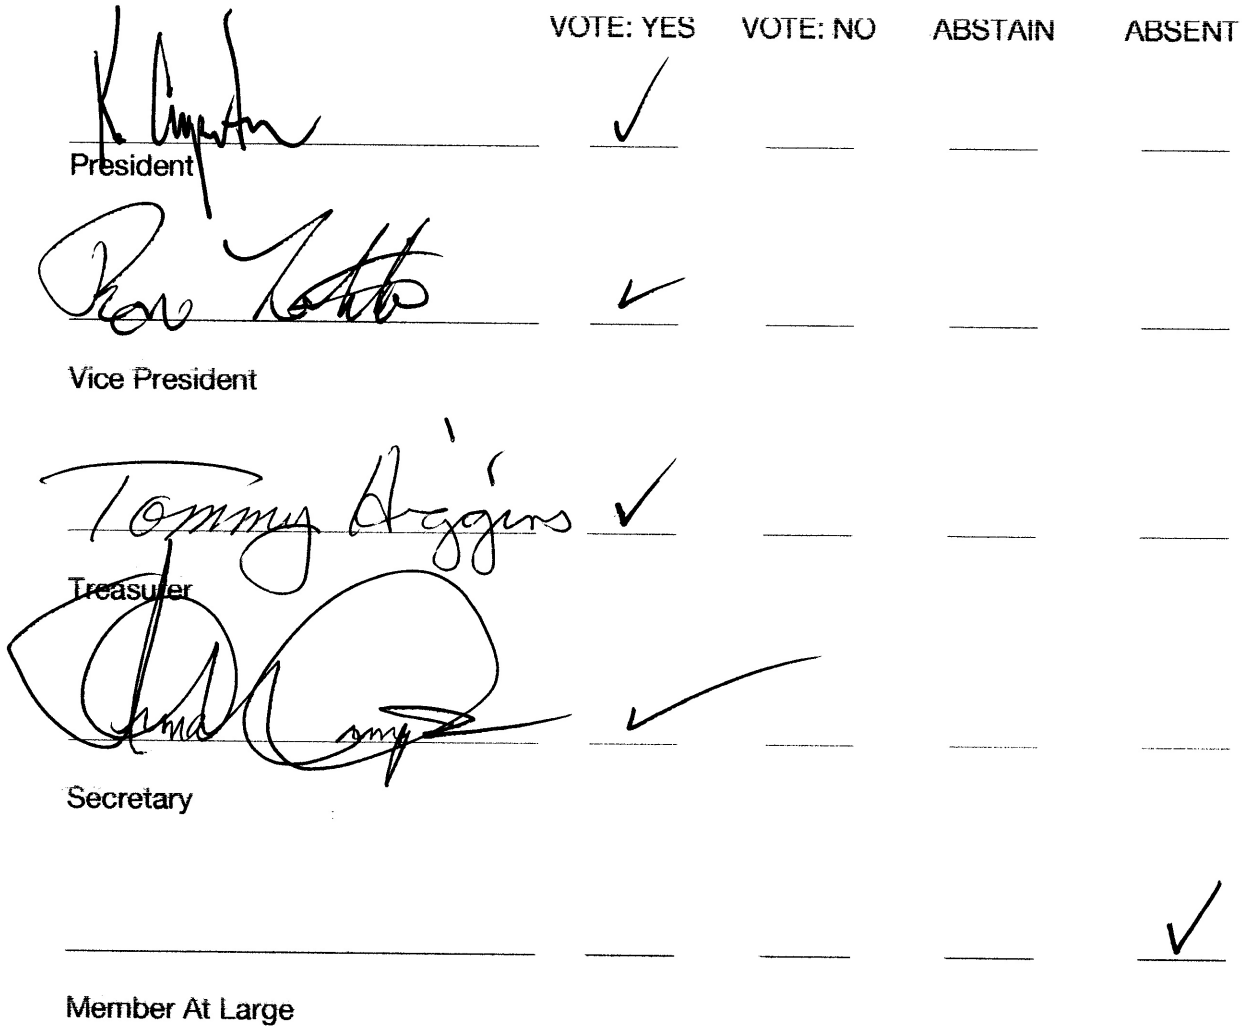 VOTE: YES VOTE: NO ABSTAIN ABSENT
K.
President
Vice President
Tommy Higgins
Treasurer
Secretary
Member At Large